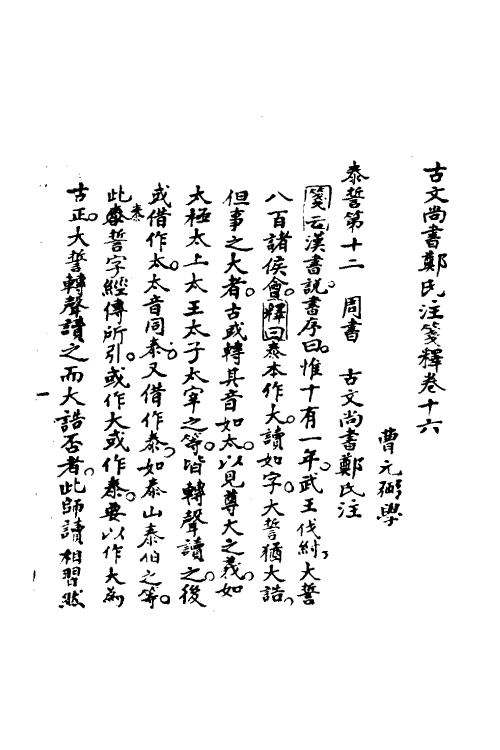 古文尚書鄭氏注箋釋卷十六
曹元弼學
泰誓第十二　周書　古文尚書鄭氏注
箋云漢書說書序曰。惟十有一年。武王伐紂、大誓
八百諸侯會。釋曰泰本作大。讀如字。大誓猶大誥、
但事之大者。古或轉其音如太。以見尊大之義。如
太極太上太王太子太宰之等。皆轉聲讀之。後
或借作太。太音同泰。又借作泰、如泰山泰伯之等。
此泰誓字經傳所引。或作大或作泰。要以作大為
古正。大誓轉聲讀之而大誥否者。此師讀相習然
一